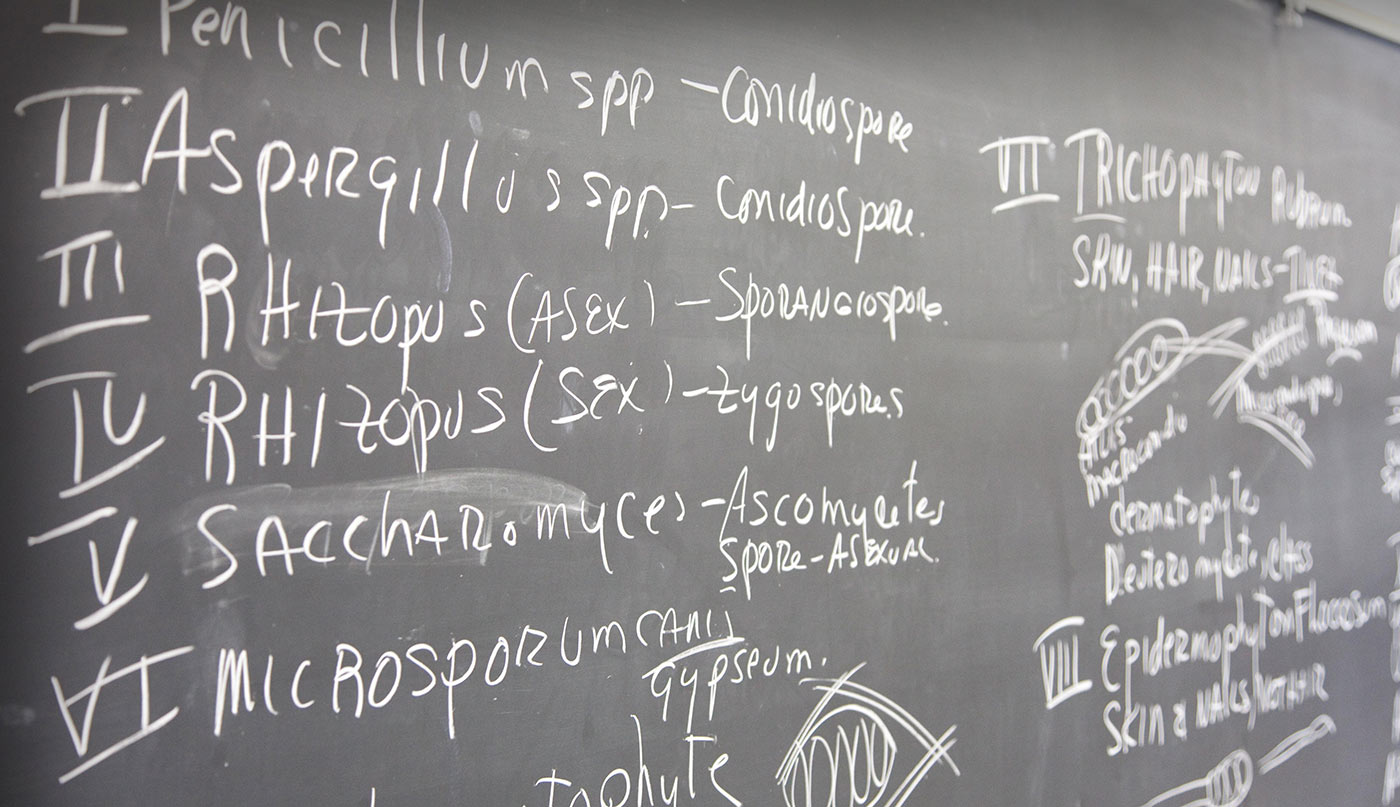 I Penicillium spp - Conidiospore
II Aspergillus spp. - Conidiospore.
III RHIZOPUS (ASEX) - SPORANGIOSPORE.
IV RHIZOPUS (SEX) - Zygospores
V SACCHAROmyces - Ascomycetes
Spore - ASEXUAL.
VI MICROSPORUM CANIS
Gypseum.
tophyte
VII TRICHOPHYTON RUBRUM
SKIN, HAIR, NAILS - TINEA
macrocondo
dermatophyte
Deuteromycete, class
VIII Epidermophyton Floccosum
Skin & NAILS, NOT HAIR